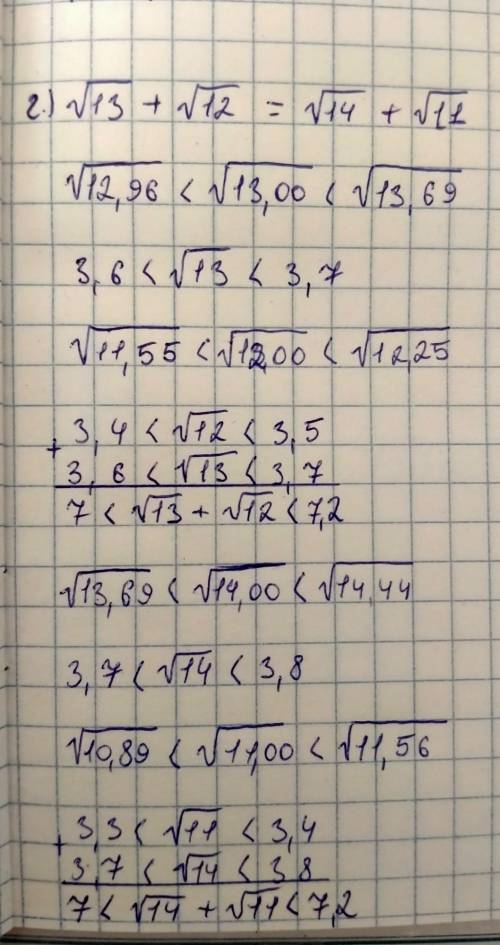 г.) √13 + √12 = √14 + √11
√12,96 < √13,00 < √13,69
3,6 < √13 < 3,7
√11,55 < √12,00 < √12,25
3,4 < √12 < 3,5
+
3,6 < √13 < 3,7
7 < √13 + √12 < 7,2
√13,69 < √14,00 < √14,44
3,7 < √14 < 3,8
√10,89 < √11,00 < √11,56
3,3 < √11 < 3,4
+
3,7 < √14 < 3 8
7 < √14 + √11 < 7,2